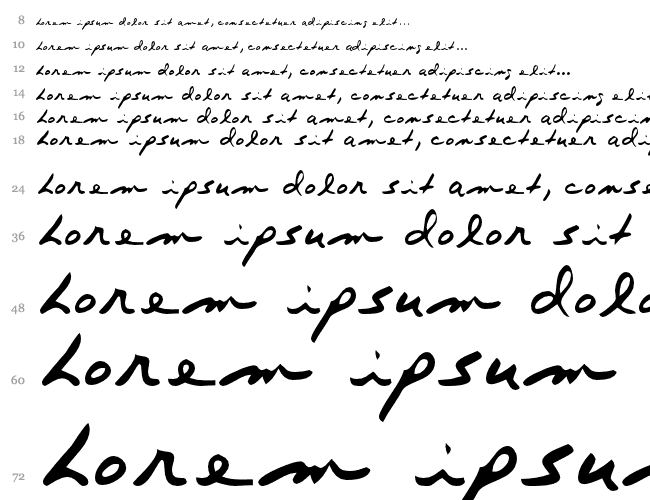 8 Lorem ipsum dolor sit amet, consectetuer adipiscing elit...
10 Lorem ipsum dolor sit amet, consectetuer adipiscing elit...
12 Lorem ipsum dolor sit amet, consectetuer adipiscing elit...
14 Lorem ipsum dolor sit amet, consectetuer adipiscing elit
16 Lorem ipsum dolor sit amet, consectetuer adipiscing
18 Lorem ipsum dolor sit amet, consectetuer adipi
24 Lorem ipsum dolor sit amet, conse
36 Lorem ipsum dolor sit
48 Lorem ipsum dolo
60 Lorem ipsum
72 Lorem ipsum